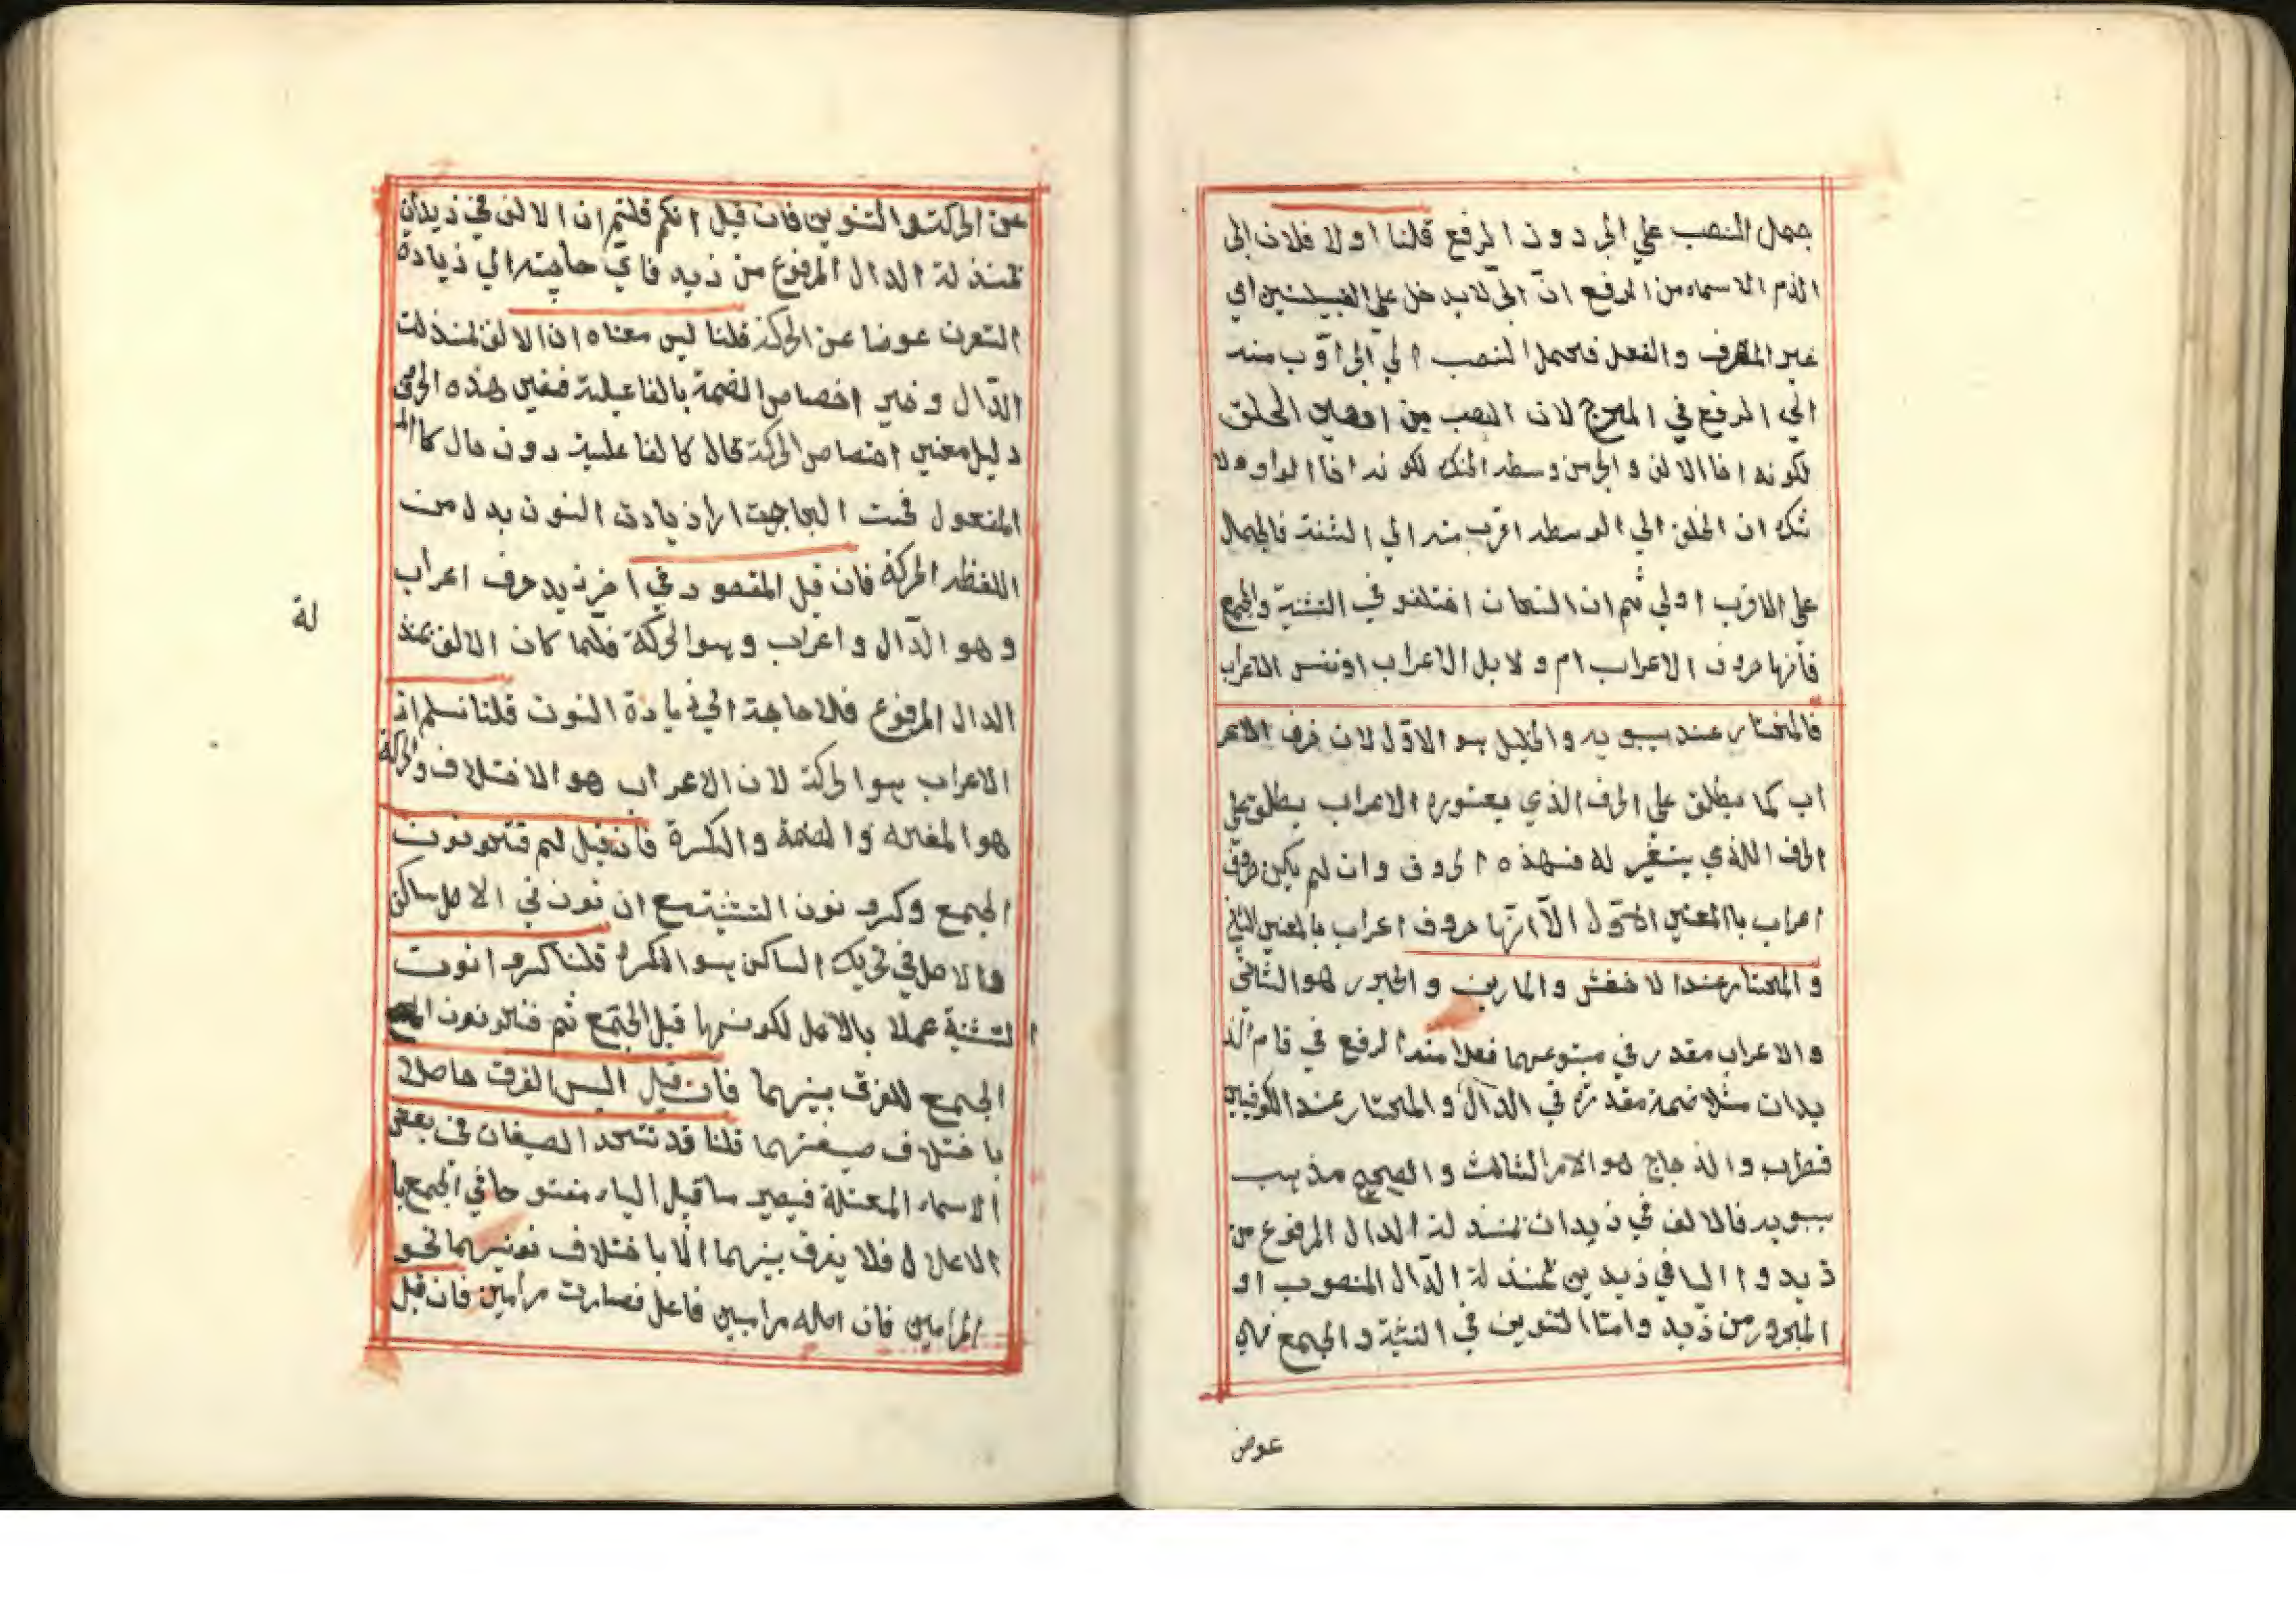 جمل النصب علي الجر دون الرفع قلنا اولا فلان الجر
الذم الاسماء من الرفع انّ الجر لا يدخل علي القبيلتين اي
غير المتصرف والفعل فالحمل النصب الي الجر اقرب منه
الي الرفع في المخرج لان النصب من اقصي الحلق
لكونه اخا الالف و الجر من وسط الحنك لكونه اخا الواو ولا
شك ان الحلق الي الوسط اقرب منه الي الشفة فالحمل
علي الاقرب اولي ثم ان النحات اختلفو في التثنية والجمع
فانها حروف الاعراب ام و لا بل الاعراب او نفس الاعراب
فالمختار عند سيبويه والخليل هو الاوّل لان حرف الاعر
اب كما يطلق علي الحرف الذي يعتوره الاعراب يطلق علي
الحرف اللذي يتغير له فهذه الحروف وان لم يكن حروف
اعراب باالمعني الاوّل الّا انّها حروف اعراب بالمعني الثاني
و المختار عند الاخفش والمازني و الجبور هو الثاني
و الاعراب مقدر في متبوعهما فعلامة الرفع في قام الذ
يدان مثلا ضمة مقدرة في الدال و المختار عند الكوفيين
قطرب و الذجاج هو الامر الثالث و الصحيح مذهب
سيبويه فالالف في ذيدان بمنذلة الدال المرفوع من
ذيد و االيا في ذيدين بمنذلة الدّال المنصوب او
المجرور من ذيد و امّا التنوين في التثنية و الجمع فهي
عوض
عن الحركة و التنوين فان قيل انكم قلتم ان الالف في ذيدان
بمنذلة الدال المرفوع من ذيد فاي حاجة الي ذيادة
النون عوضا عن الحركة قلنا ليس معناه ان الالف بمنذلت
الدّال و غير اختصاص الضمة بالفاعلية ففي هذه الحرف
دليل معني اختصاص الحركة بحال كالفاعلية دون حال كا
المفعول فحبت الحاجة الي ذيادة النون بدل من
اللفظ الحركة فان قيل المقصود في اخر ذيد حرف اعراب
و هو الدّال و اعراب و هو الحركة فلّما كان الالف بمنذ
لة
الدال المرفوع فلا حاجة الي ذيادة النون قلنا نسلم ان
الاعراب هو الحركة لان الاعراب هو الاختلاف و الحركة
هو المغايه و الضمة و الكسرة فان قيل لم فتحو نون
الجمع وكسرو نون التثنية مع ان نون في الاصل ساكن
والاصل في تحريك الساكن هو الكسرة قلنا كسرو انون
التثنية عملا بالاصل لكونها قبل الجمع ثم فتحو نون
الجمع للفرق بينهما فان قيل اليس الفرق حاصلا
باختلاف صيغتهما قلنا قد تتحد الصيغان في بعض
الاسماء المعتلة فيصير ما قبل الياء مفتوحا في الجمع با
الاعلال فلا يفرق بينهما الّا باختلاف نونيهما نحو
المرامين فان اصله مراميين فاعل فصارت مرامين فان قيل